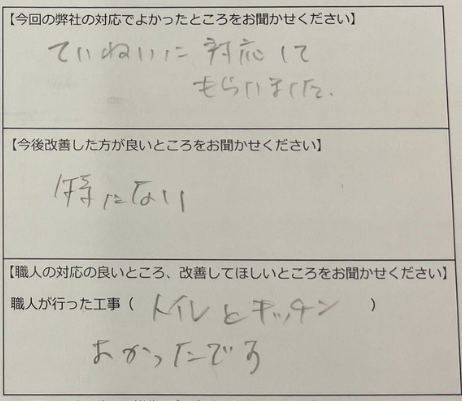 【今回の弊社の対応でよかったところをお聞かせください】
ていねいに対応して
もらいました.
【今後改善した方が良いところをお聞かせください】
特にない
【職人の対応の良いところ、改善してほしいところをお聞かせください】
職人が行った工事（トイレとキッチン）
よかったです